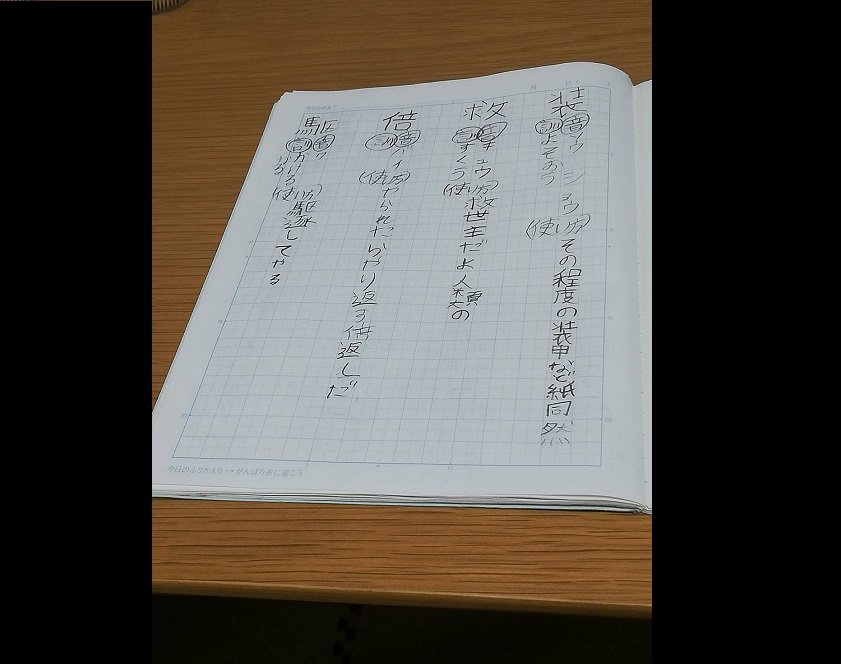 月 日( )
装
音 ソウ ショウ
訓 よそおう
(使い方)その程度の装甲など紙同然
救
音 キュウ
訓 すくう
(使い方)救世主だよ人類の
倍
音 バイ
訓
(使い方)やられたらやり返す倍返しだ
駆
音 ク
訓 かける かる
(使い方)駆逐してやる
今日のめあて
今日のふりかえり→がんばり表に書こう